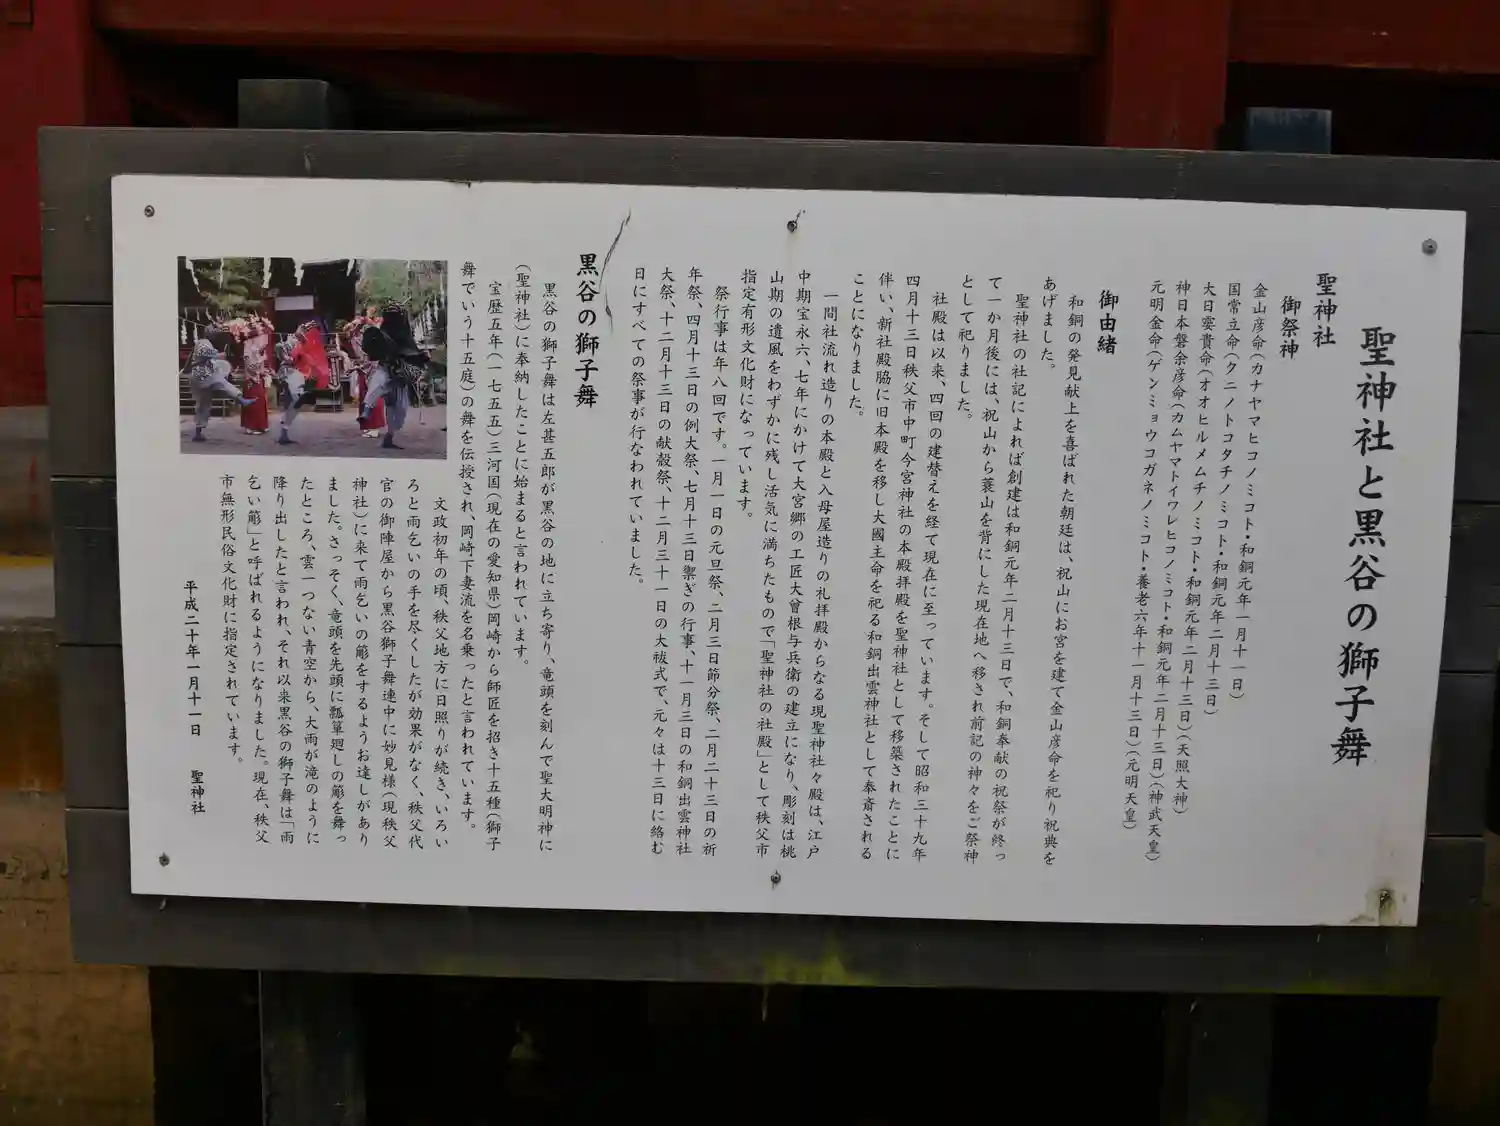 聖神社と黒谷の獅子舞
聖神社
御祭神
金山彦命(カナヤマヒコノミコト・和銅元年一月十一日)
国常立命(クニノトコタチノミコト・和銅元年二月十三日)
大日孁貴命(オオヒルメムチノミコト・和銅元年二月十三日)(天照大神)
神日本磐余彦命(カムヤマトイワレヒコノミコト・和銅元年二月十三日)(神武天皇)
元明金命(ゲンミョウコガネノミコト・養老六年十一月十三日)(元明天皇)
御由緒
和銅の発見献上を喜ばれた朝廷は、祝山にお宮を建て金山彦命を祀り祝典を
あげました。
聖神社の社記によれば創建は和銅元年二月十三日で、和銅奉献の祝祭が終っ
て一か月後には、祝山から蓑山を背にした現在地へ移され前記の神々をご祭神
として祀りました。
社殿は以来、四回の建替えを経て現在に至っています。そして昭和三十九年
四月十三日秩父市中町今宮神社の本殿拝殿を聖神社として移築されたことに
伴い、新社殿脇に旧本殿を移し大國主命を祀る和銅出雲神社として奉斎される
ことになりました。
一間社流れ造りの本殿と入母屋造りの礼拝殿からなる現聖神社々殿は、江戸
中期宝永六、七年にかけて大宮郷の工匠大曾根与兵衛の建立になり、彫刻は桃
山期の遺風をわずかに残し活気に満ちたもので「聖神社の社殿」として秩父市
指定有形文化財になっています。
祭行事は年八回です。一月一日の元旦祭、二月三日節分祭、二月二十三日の祈
年祭、四月十三日の例大祭、七月十三日禦ぎの行事、十一月三日の和銅出雲神社
大祭、十二月十三日の献穀祭、十二月三十一日の大祓式で、元々は十三日に絡む
日にすべての祭事が行なわれていました。
黒谷の獅子舞
黒谷の獅子舞は左甚五郎が黒谷の地に立ち寄り、竜頭を刻んで聖大明神に
(聖神社)に奉納したことに始まると言われています。
宝歴五年(一七五五)三河国(現在の愛知県)岡崎から師匠を招き十五種(獅子
舞でいう十五庭)の舞を伝授され、岡崎下妻流を名乗ったと言われています。
文政初年の頃、秩父地方に日照りが続き、いろい
ろと雨乞いの手を尽くしたが効果がなく、秩父代
官の御陣屋から黒谷獅子舞連中に妙見様(現秩父
神社)に来て雨乞いの簓をするようお達しがあり
ました。さっそく、竜頭を先頭に瓢箪廻しの簓を舞っ
たところ、雲一つない青空から、大雨が滝のように
降り出したと言われ、それ以来黒谷の獅子舞は「雨
乞い簓」と呼ばれるようになりました。現在、秩父
市無形民俗文化財に指定されています。
平成二十年一月十一日　聖神社